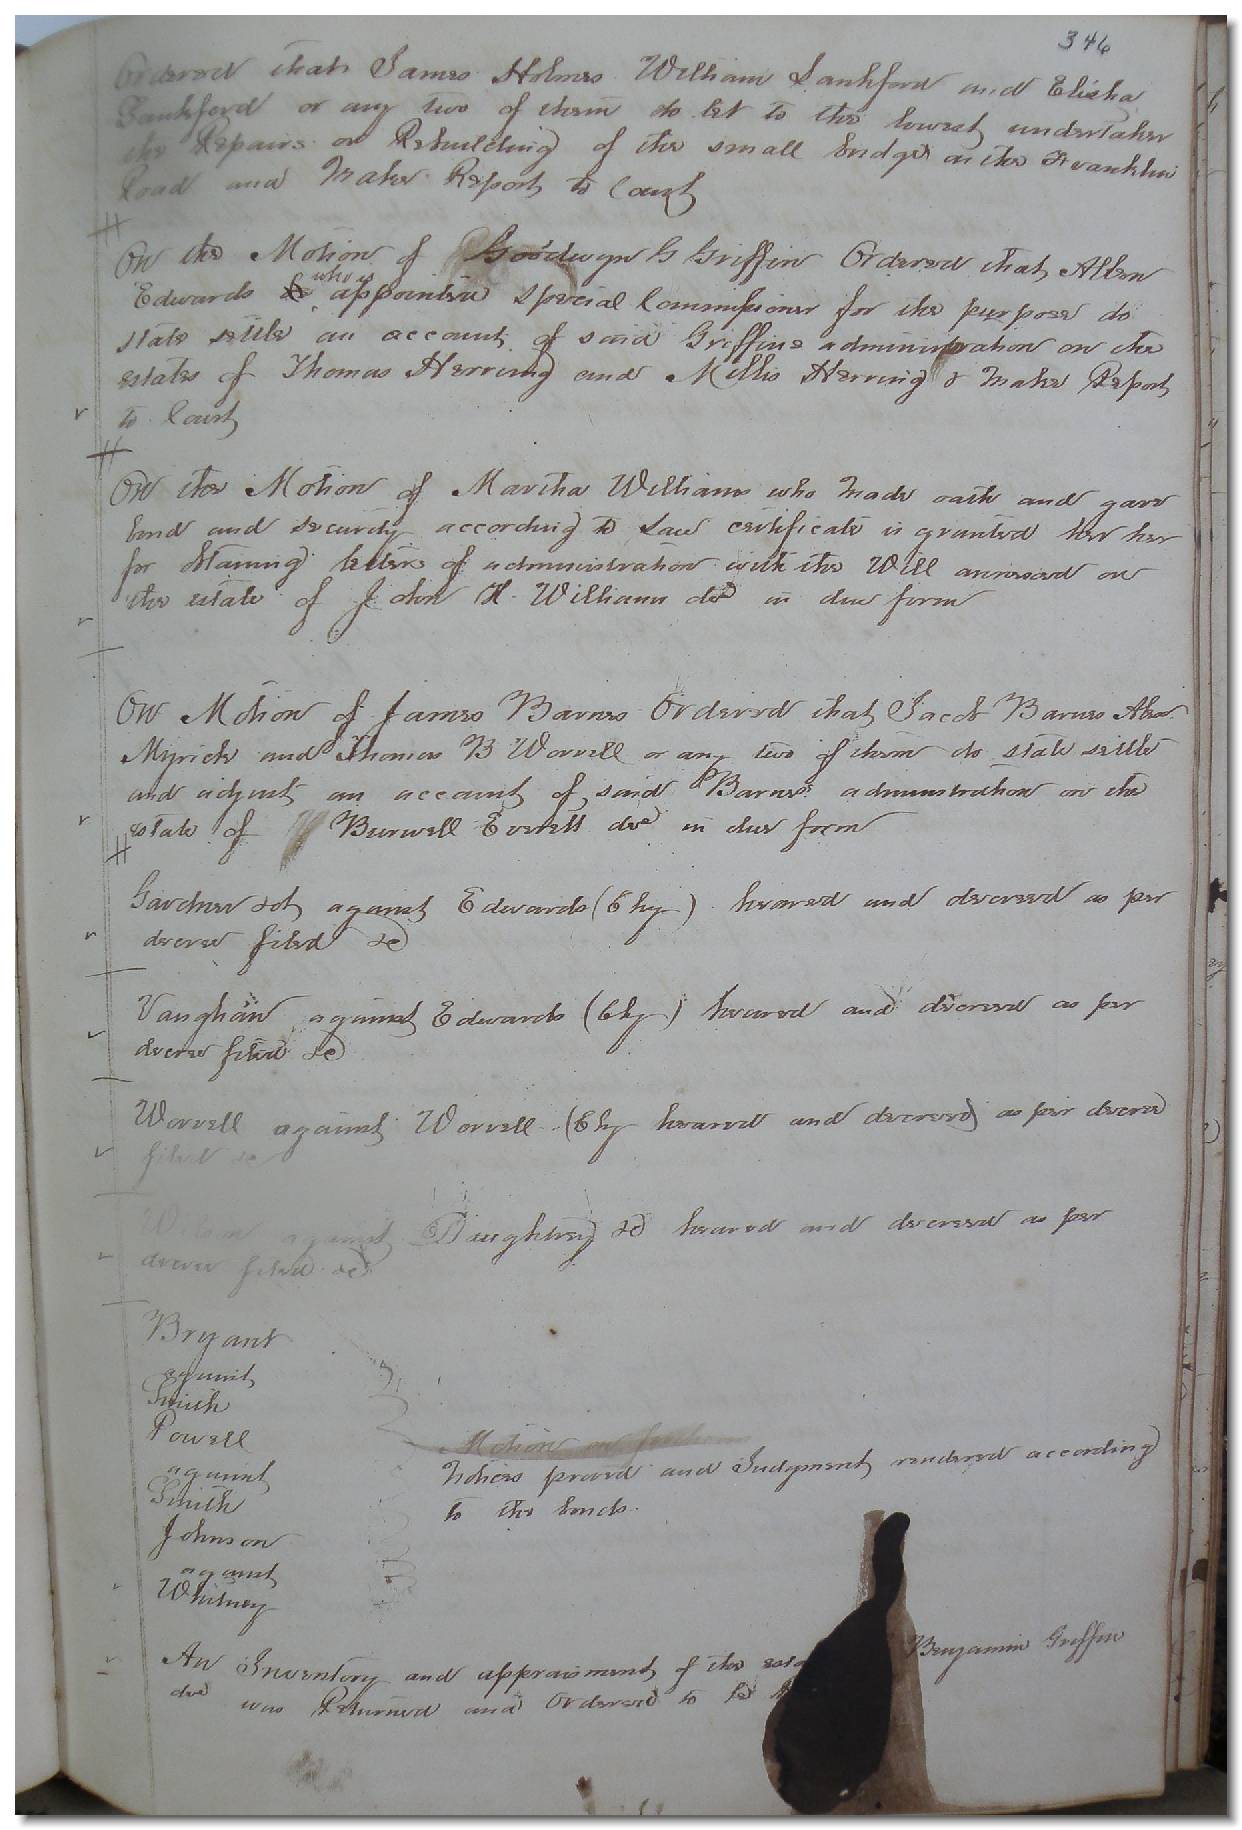 346
Ordered that James Holmes William Lankford and Elisha
Lankford or any two of them do let to the lowest undertaker
the Repairs or Rebuilding of the small bridge on the Franklin
Road and Make Report to Court
On the Motion of Goodwyn G Griffin Ordered that Allen
Edwards who is appointed special Commissioner for the purpose do
state settle an account of said Griffins administration on the
estates of Thomas Herring and Millis Herring & Make Report
to Court
On the Motion of Martha Williams who made oath and gave
bond and security according to Law certificate is granted her her
for obtaining letters of administration with the Will annexed on
the estate of John H. Williams decd in due form
On Motion of James Barnes Ordered that Jacob Barnes Alex
Myrick and Thomas B Worrell or any two of them do state settle
and adjust an account of said Barnes administration on the
estate of Burwell Everett decd in due form
Gardner &ct against Edwards (Chy) heared and decreed as per
decree filed &c
Vaughan against Edwards (Chy) heared and decreed as per
decree filed &c
Worrell against Worrell (Chy heared and decreed) as per decree
filed &c
against Daughtrey &c heared and decreed as per
decree filed &c
Bryant
against
Smith
Powell
against
Smith
Johnson
against
Whitney
Motion on
Notices proved and Judgment rendered according
to the bonds.
An Inventory and appraisment of the Benjamin Griffin
decd was Returned and Ordered to be